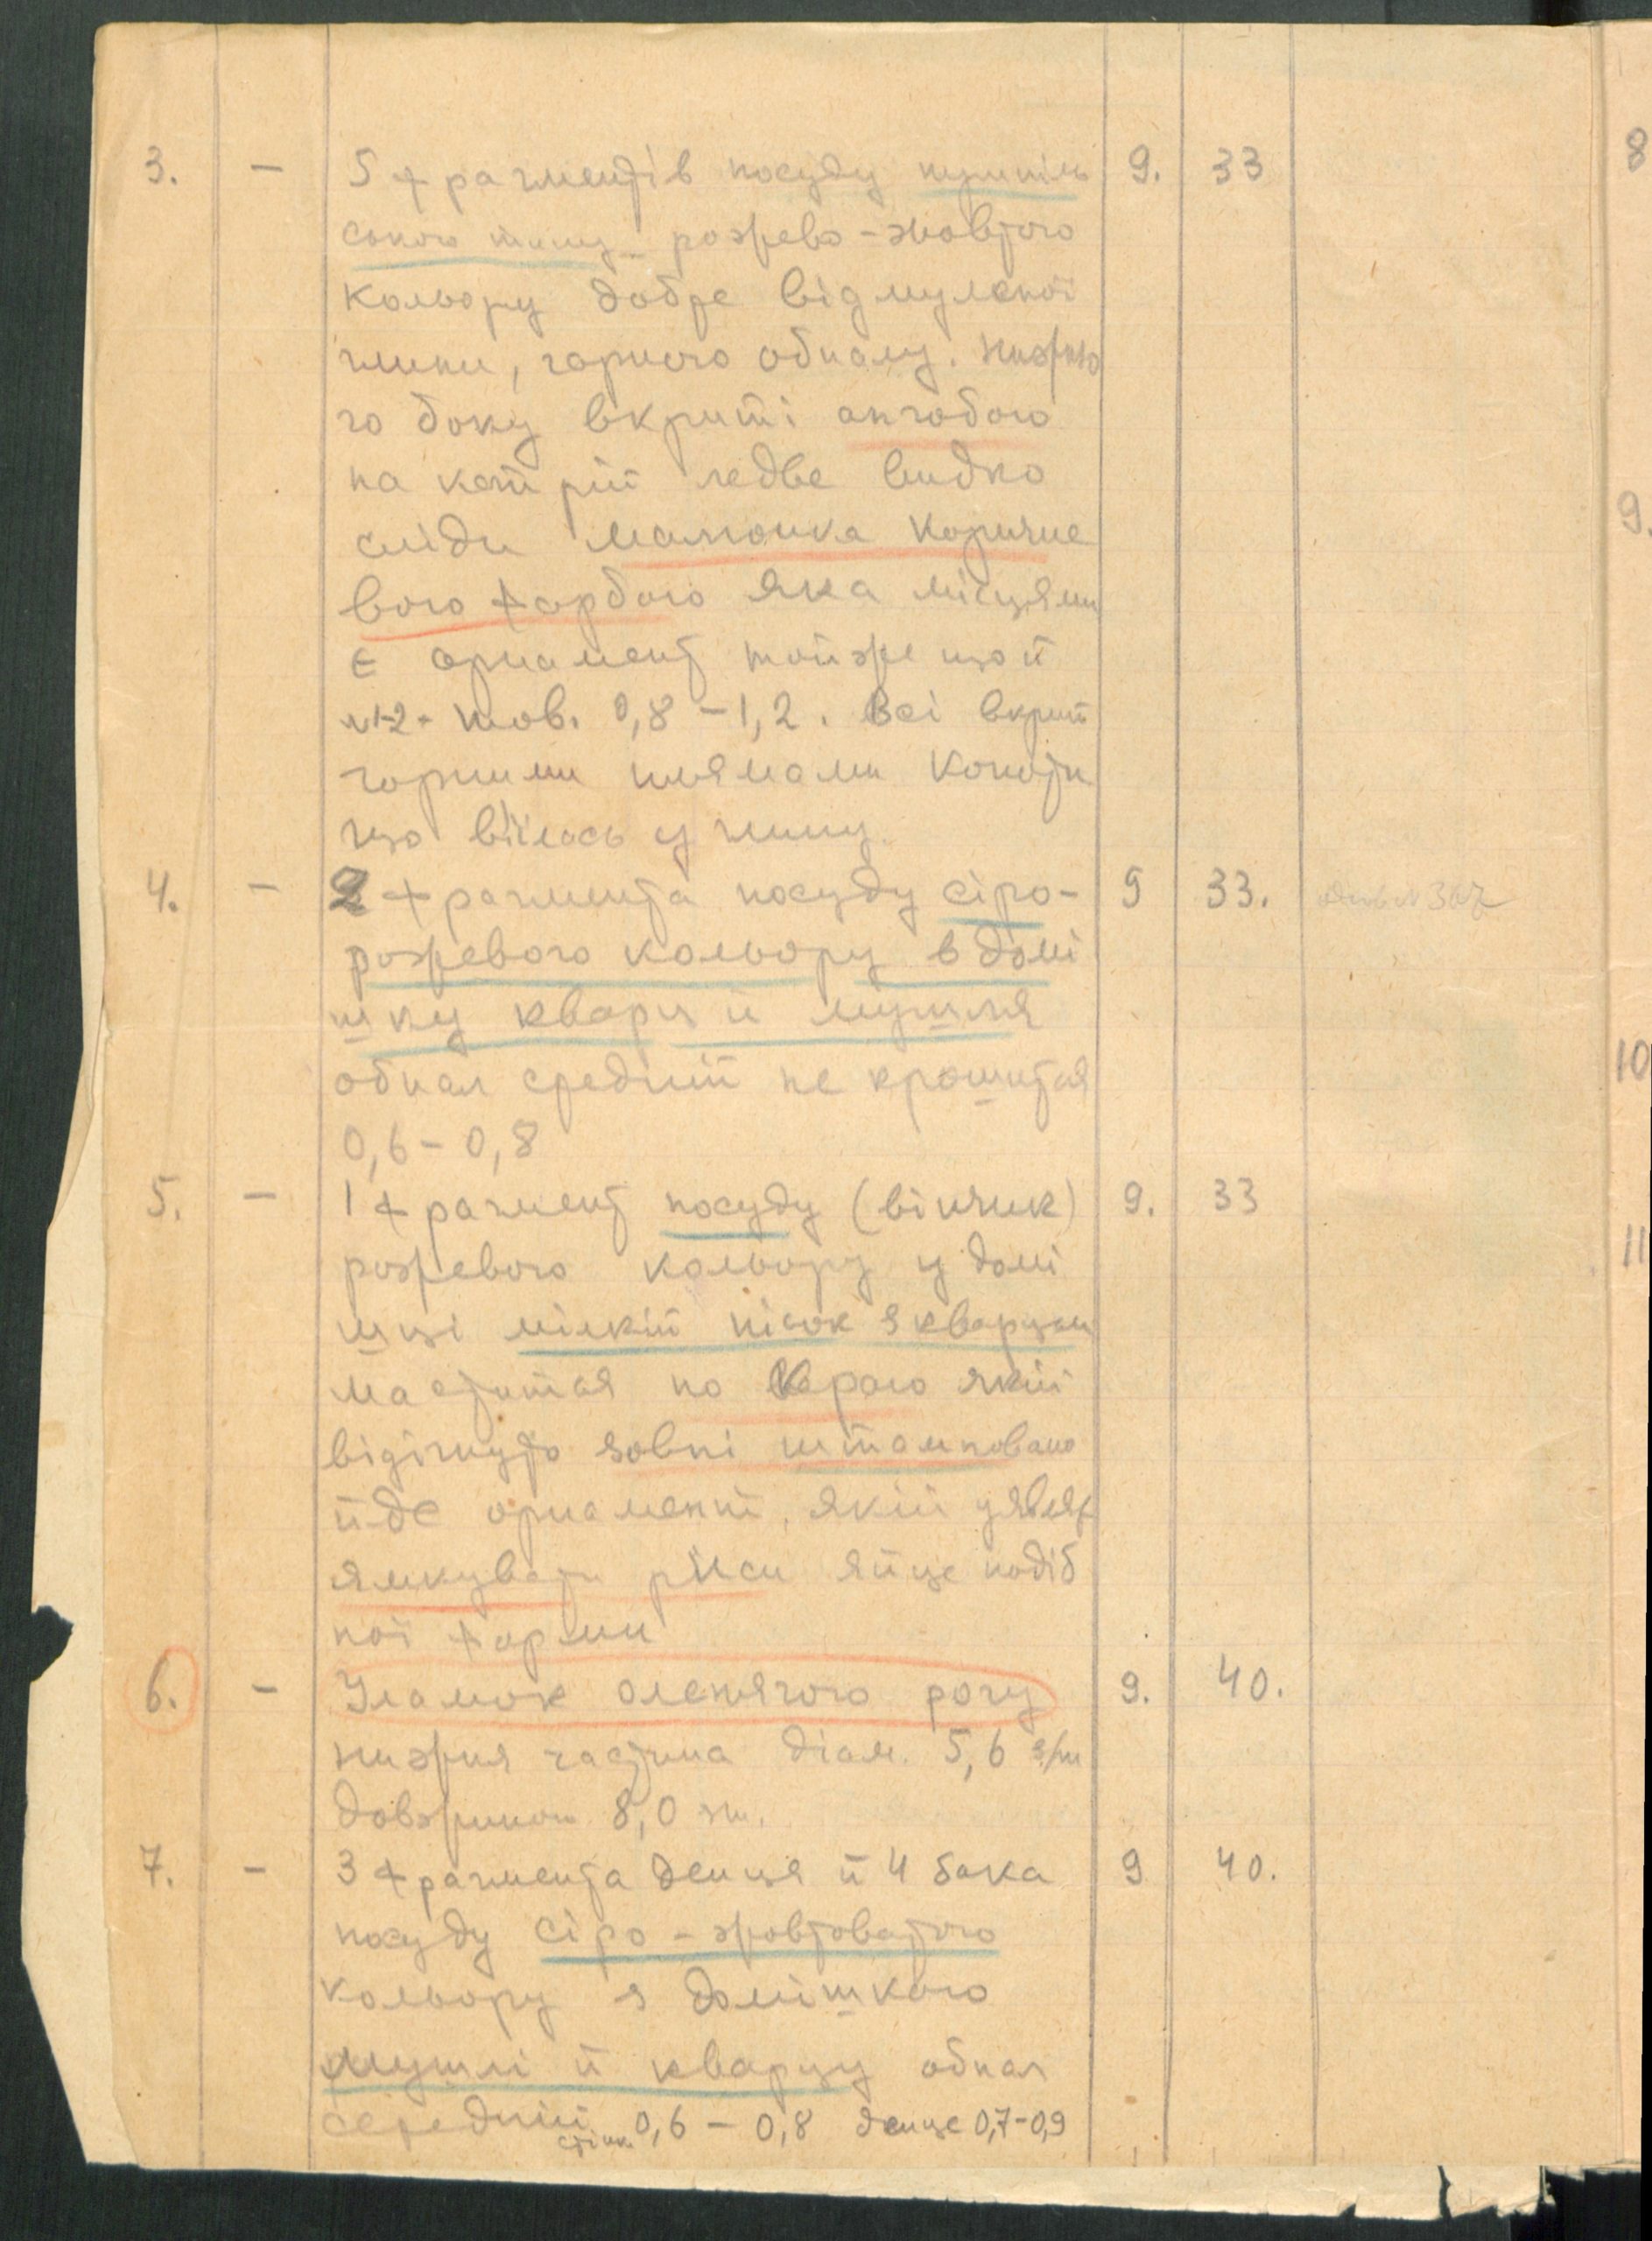 3. — 5 фрагментів посуду трипіль 9. 33
ського типу рожево-жовтого
кольору добре відмуленої
глини, гарного обпалу. нижньо
го боку вкриті ангобою
на котрій ледве видко
сліди малюнка коричне
вою фарбою яка місцями
є орнамент той же що й
№1-2. тов. 0,8 – 1,2. Всі вкрит
чорними плямами копоти
що віїлась у глину.
4. — 2 фрагмента посуду сіро- 9 33.
рожевого кольору в домі
шку кварц й мушля
обпал средній не крошится
0,6 – 0,8
5. — 1 фрагмент посуду (вінчик) 9. 33
рожевого кольору у домі
шці мілкій пісок з кварцом
маститься по краю який
відігнуто зовні штамповано
йде орнамент, якій уявляє
ямкувати ріси яйце подіб
ної форми
6. — Уламок оленячого рогу 9. 40.
нижня частина діам. 5,6 с/м
довжиною 8,0 см.
7. — 3 фрагмента денця й 4 бока 9 40.
посуду сіро-жовтоватого
кольору з домішкою
мушлі й кварцу обпал
середній 0,6 – 0,8 денце 0,7-0,9
стінк
8
9.
10
11